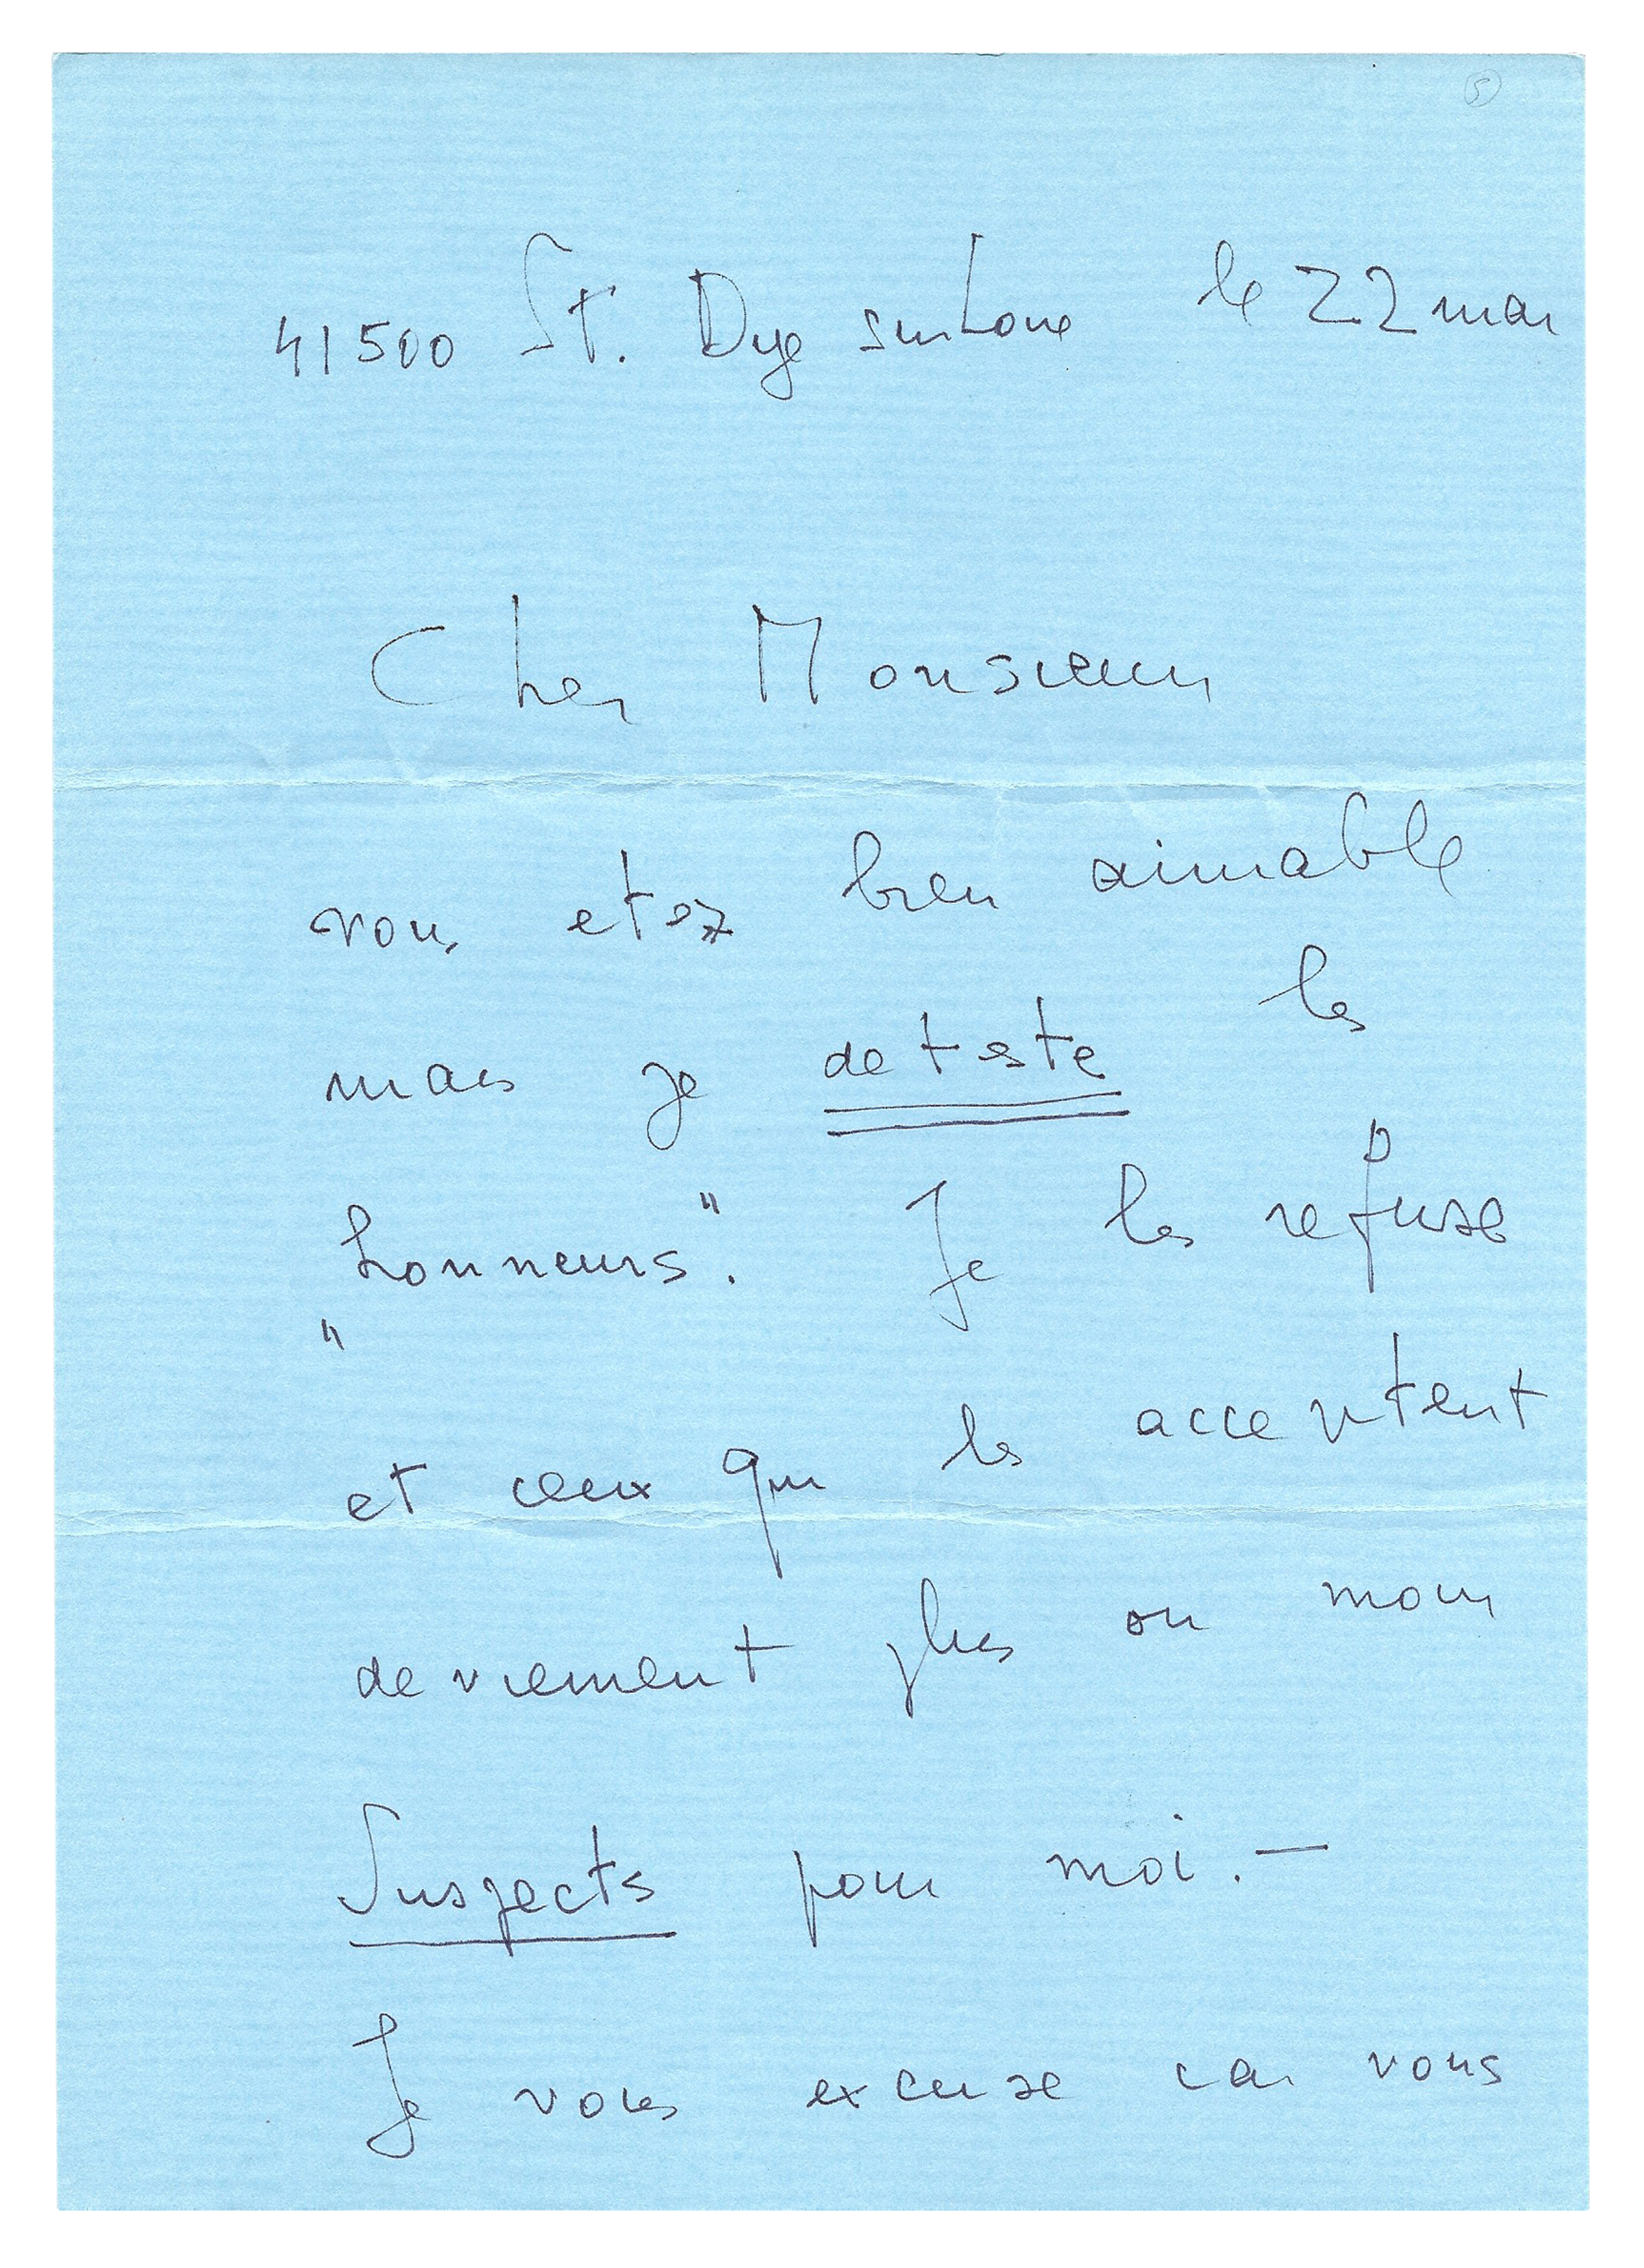 5
41500 St. Dye sur Loire le 22 mai
Cher Monsieur
vous etez bien aimable
mais je deteste les
"honneurs". Je les refuse
et ceux qui les acceptent
deviennent plus ou moins
Suspects pour moi. —
Je vous excuse car vous